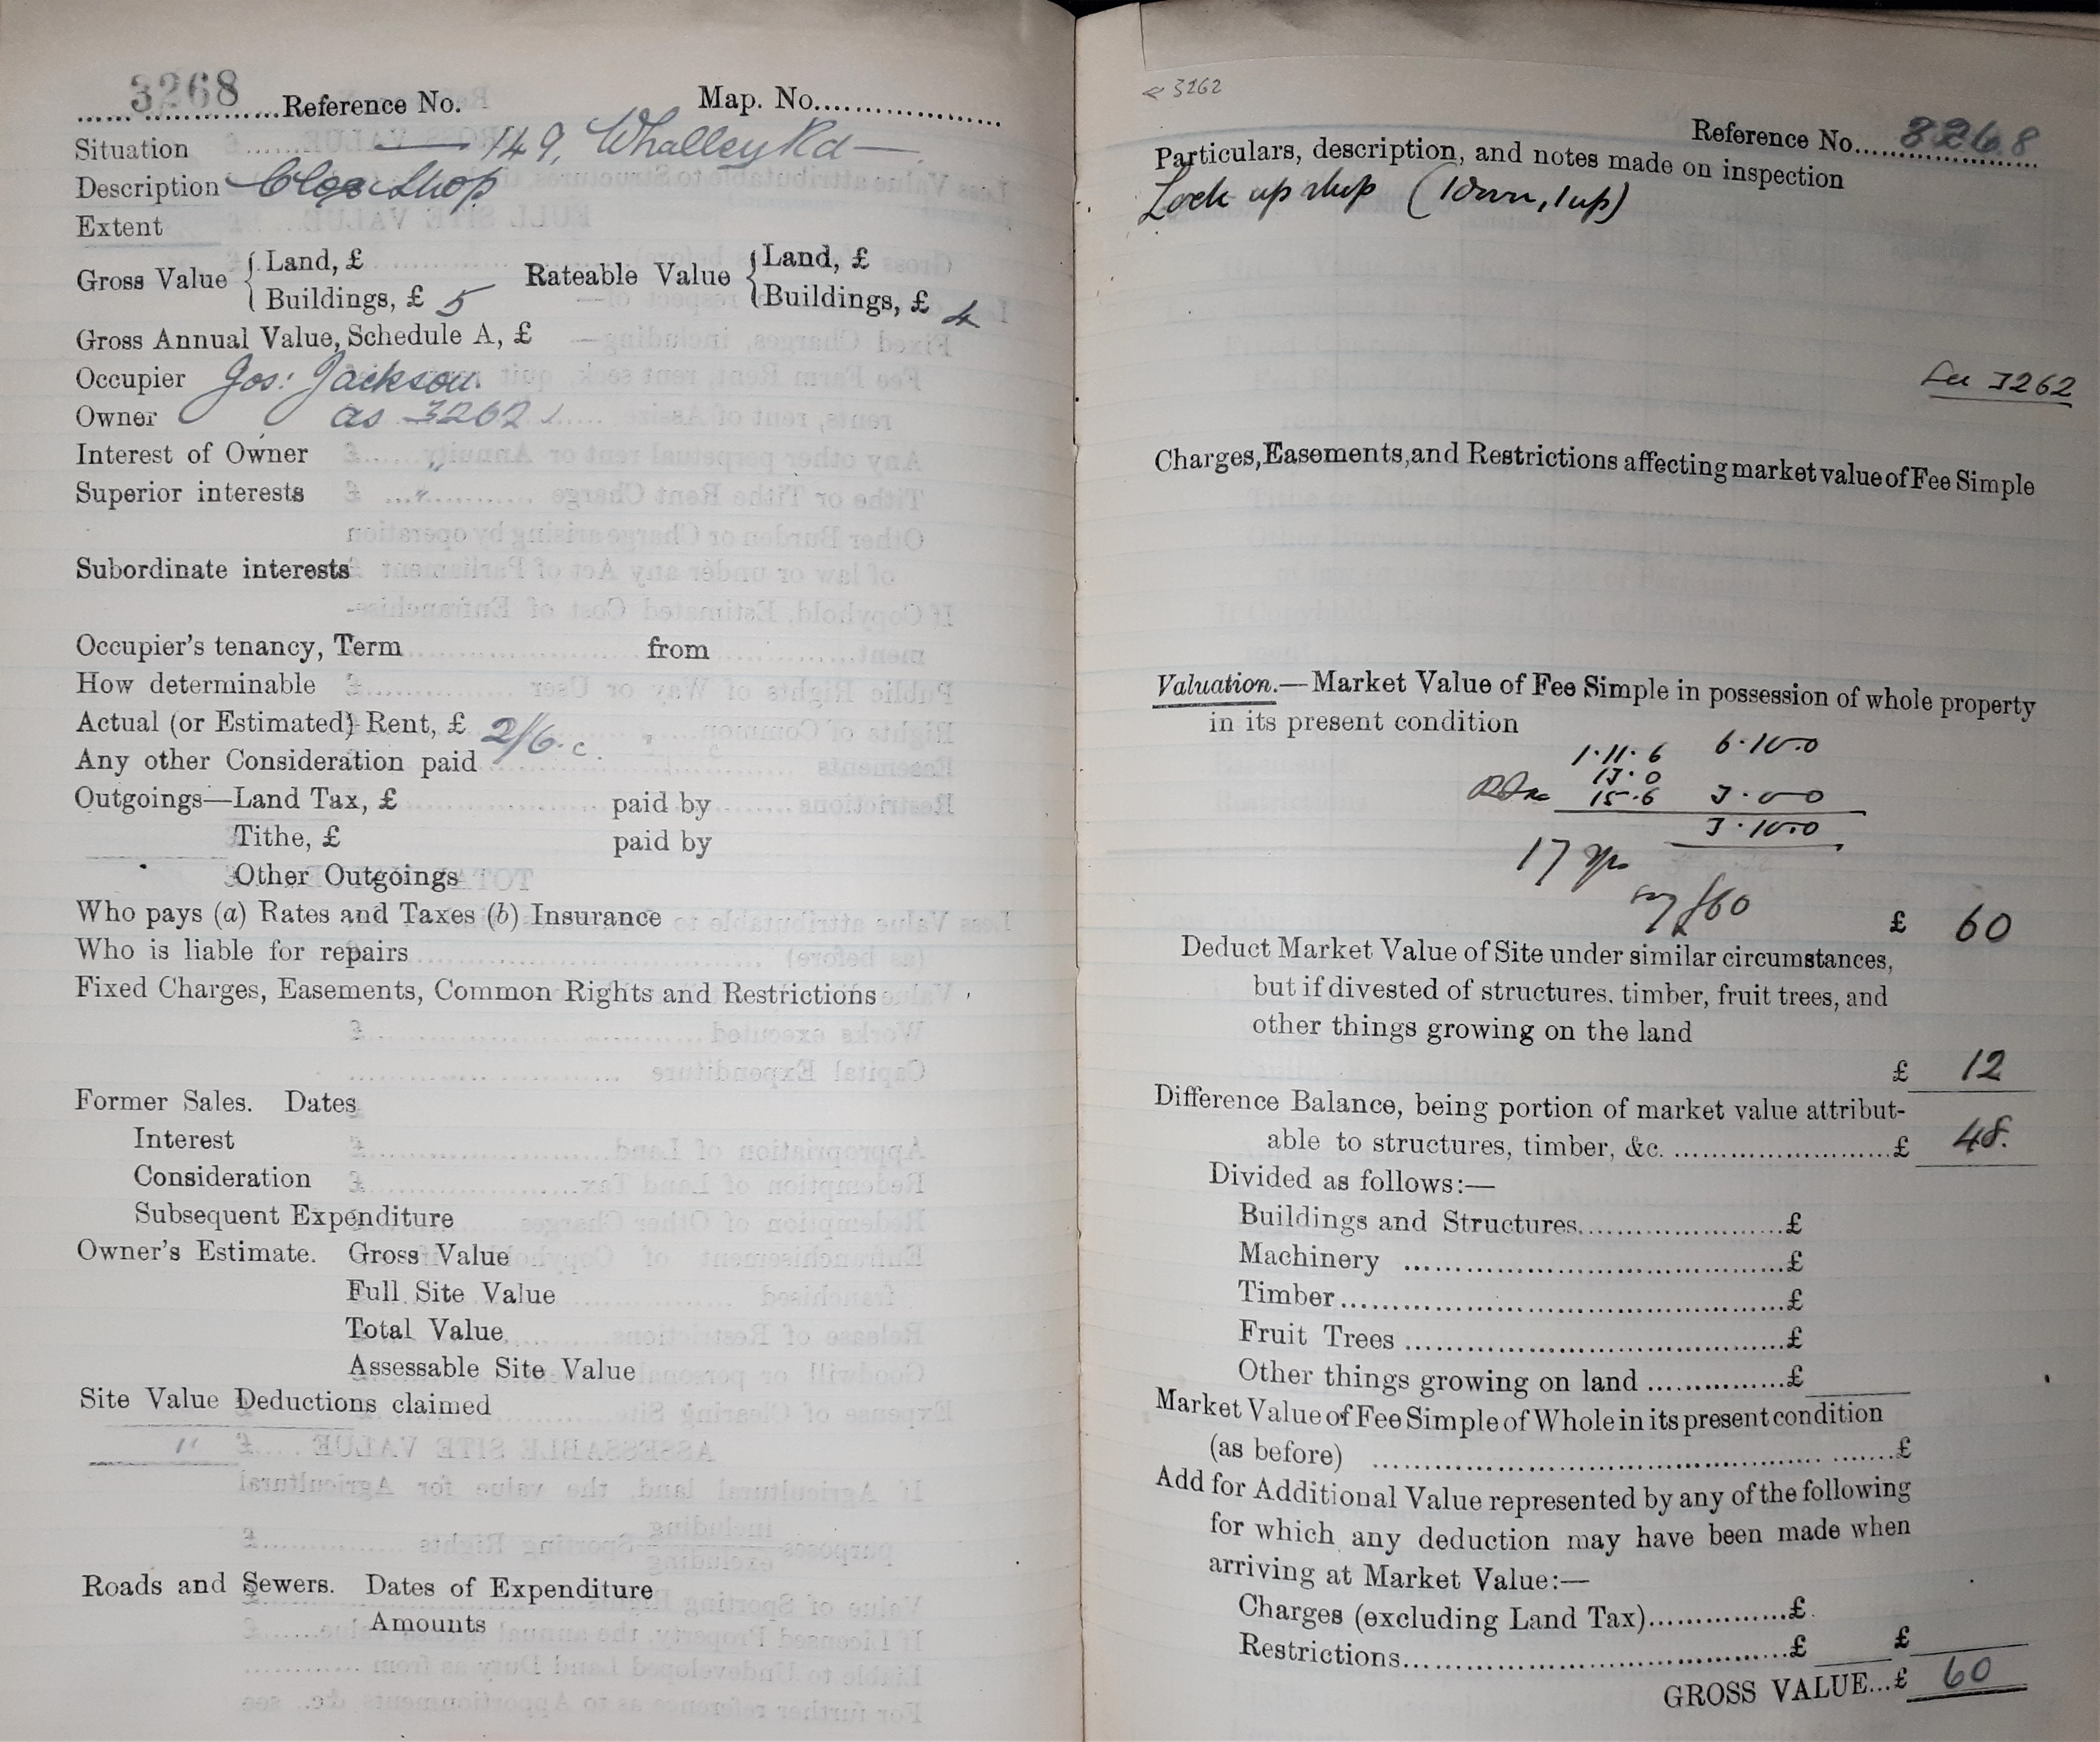 3268 Reference No. Map. No.
Situation 149, Whalley Rd
Description Clog Shop
Extent
Gross Value { Land, £ Rateable Value { Land, £
Buildings, £ 5 Buildings, £ 4
Gross Annual Value, Schedule A, £
Occupier Jos: Jackson.
Owner as 3262
Interest of Owner "
Superior interests "
Subordinate interests
Occupier's tenancy, Term from
How determinable
Actual (or Estimated) Rent, £ 2/6. c.
Any other Consideration paid
Outgoings—Land Tax, £ paid by
Tithe, £ paid by
Other Outgoings
Who pays (a) Rates and Taxes (b) Insurance
Who is liable for repairs
Fixed Charges, Easements, Common Rights and Restrictions
Former Sales. Dates
Interest
Consideration
Subsequent Expenditure
Owner's Estimate. Gross Value
Full Site Value
Total Value
Assessable Site Value
Site Value Deductions claimed
Roads and Sewers. Dates of Expenditure
Amounts
3262
Reference No. 3268
Particulars, description, and notes made on inspection
Lock up shop (1 down, 1 up)
See 3262
Charges, Easements, and Restrictions affecting market value of Fee Simple
Valuation.—Market Value of Fee Simple in possession of whole property
in its present condition
1.11.6 6.10.0
13.0
15.6 3.0.0
3.10.0
17 yrs
say £60
£ 60
Deduct Market Value of Site under similar circumstances,
but if divested of structures, timber, fruit trees, and
other things growing on the land
£ 12
Difference Balance, being portion of market value attribut-
able to structures, timber, &c. £ 48.
Divided as follows:—
Buildings and Structures £
Machinery £
Timber £
Fruit Trees £
Other things growing on land £
Market Value of Fee Simple of Whole in its present condition
(as before) £
Add for Additional Value represented by any of the following
for which any deduction may have been made when
arriving at Market Value:—
Charges (excluding Land Tax) £
Restrictions £ £
GROSS VALUE...£ 60